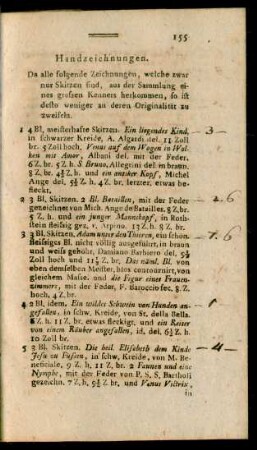 155
Handzeichnungen.
Da alle folgende Zeichnungen, welche zwar
nur Skitzen sind, aus der Sammlung ei-
nes grossen Kenners herkommen, so ist
desto weniger an deren Originalität zu
zweifeln.
1 4 Bl. meisterhafte Skitzen. Ein liegendes Kind,
in schwarzer Kreide, A. Algardi del. 11 Zoll
br. 9 Zoll hoch, Venus auf dem Wagen in Wol-
ken mit Amor, Albani del. mit der Feder.
6 Z. br. 9½ Z. h. S. Bruno, Allegrini del. in braun.
8 Z. br. 4½ Z. h. und ein antiker Kopf, Michel
Ange del. 5½ Z. h. 4 Z. br. lerzter, etwas be-
fleckt.
3
2 3 Bl. Skitzen. 2 Bl. Bataillen, mit der Feder
gezeichnet von Mich. Ange de Batailles. 8 Z. br.
5 Z. h. und ein junger Mannskopf, in Roth-
stein fleissig gez. v. Arpino. 13 Z. h. 8 Z. br.
6
3 3 Bl. Skitzen. Adam unter den Thieren, ein schön.
fleissiges Bl. nicht völlig ausgeführt, in braun
und weiss gehöht, Damiano Barbiero del. 5½
Zoll hoch und 11½ Z. br. Das nänl. Bl. von
eben demselben Meister, blos contournirt, von
gleichem Masse. und die Figur einer Frauen-
zimmers, mit der Feder, F. Baroccio fec. 8 Z.
hoch, 4 Z. br.
6
4 2 Bl. idem. Ein wildes Schwein von Hunden an-
gefallen, in schw. Kreide, von St. della Bella.
8 Z. h. 11 Z. br. etwas fleckigt, und ein Reiter
von einem Räuber angefallen, id. del. 6½ Z. h.
10 Zoll br.
1
5 3 Bl. Skitzen. Die heil. Elisabeth dem Kinde
Jesu zu Füssen, in schw. Kreide, von M. Be-
neficiale, 9 Z. h. 11 Z. br. 2 Faunen und eine
Nymphe, mit der Feder von P. S. S. Bartholi
gezeichn. 7 Z. h. 5½ Z. br. und Venus Victrix,
4
in